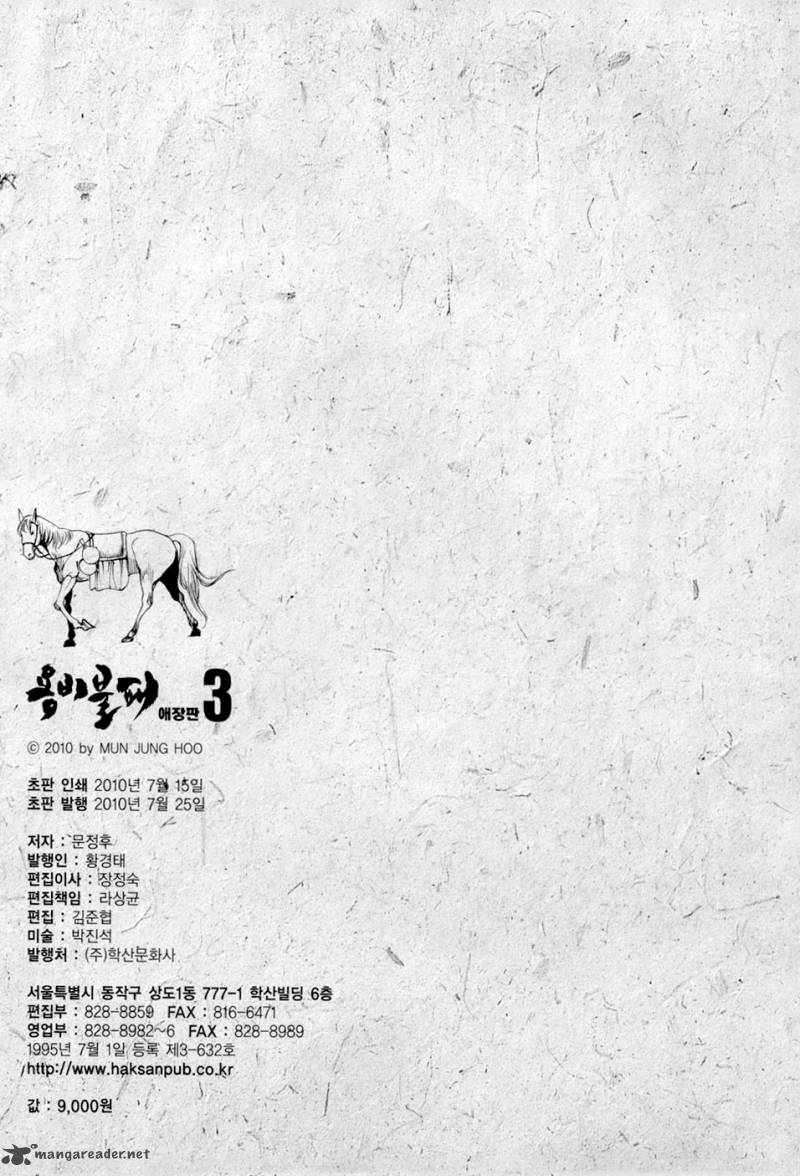 용비불패 애장판 3
ⓒ 2010 by MUN JUNG HOO
초판 인쇄 2010년 7월 15일
초판 발행 2010년 7월 25일
저자 : 문정후
발행인 : 황경태
편집이사 : 장정숙
편집책임 : 라상균
편집 : 김준협
미술 : 박진석
발행처 : (주)학산문화사
서울특별시 동작구 상도1동 777-1 학산빌딩 6층
편집부 : 828-8859 FAX : 816-6471
영업부 : 828-8982~6 FAX : 828-8989
1995년 7월 1일 등록 제3-632호
http://www.haksanpub.co.kr
값 : 9,000원
mangareader.net